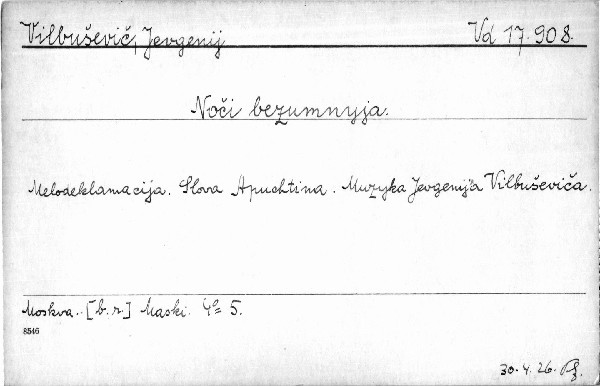 Vilbuševič, Jevgenij Vd 17.908.
Noči bezumnyja.
Melodeklamacija. Slova Apuchtina. Muzyka Jevgenij'a Vilbuševiča.
Moskva. [b.r.] Maski. 4º 5.
8546
30.4.26.